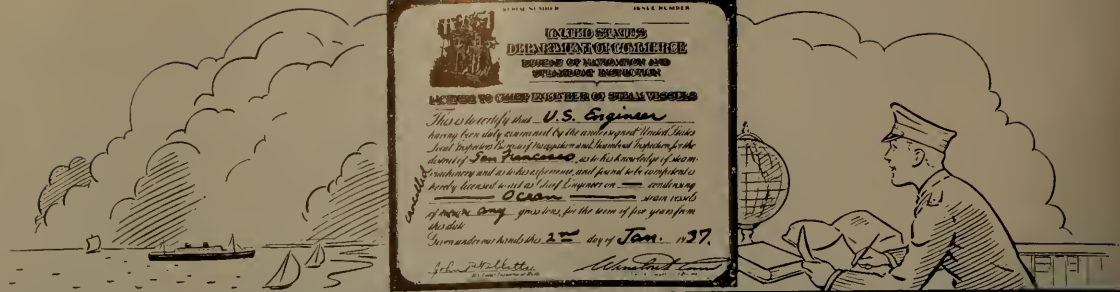 SERIAL NUMBER ISSUE NUMBER
UNITED STATES
DEPARTMENT OF COMMERCE
BUREAU OF NAVIGATION AND
STEAMBOAT INSPECTION
LICENSE TO CHIEF ENGINEER OF STEAM VESSELS
This is to certify that U.S. Engineer
having been duly examined by the undersigned United States
Local Inspectors Bureau of Navigation and Steamboat Inspection, for the
district of San Francisco, as to his knowledge of steam
machinery and as to his experience, and found to be competent is
hereby licensed to act as Chief Engineer on condensing
Ocean steam vessels
of any gross tons, for the term of five years from
this date
Given under our hands this 2nd day of Jan. 1937.
cancelled